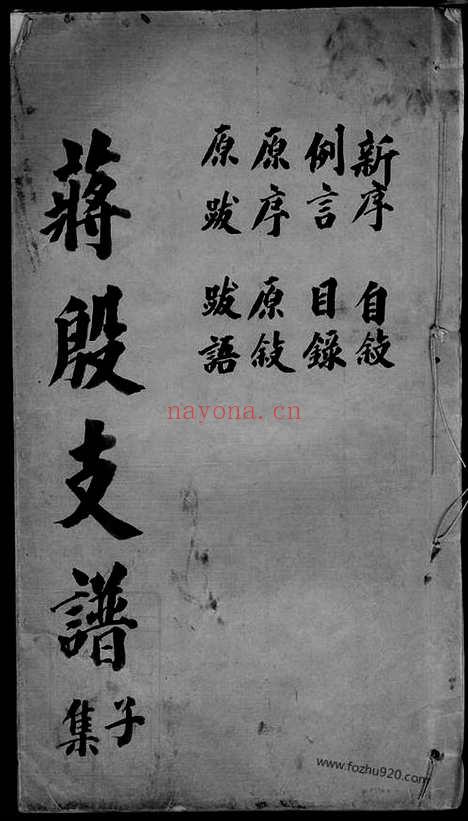 新序 自敘
例言 目錄
原序 原敘
原跋 跋語
蔣殷支譜
子集
nayona.cn
www.fozhu920.com